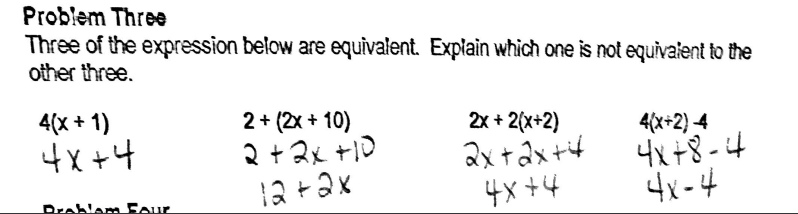 Problem Three
Three of the expression below are equivalent. Explain which one is not equivalent to the
other three.
4(x + 1) 2 + (2x + 10) 2x + 2(x+2) 4(x+2) -4
4x + 4 2 + 2x + 10 2x + 2x + 4 4x + 8 - 4
12 + 2x 4x + 4 4x - 4
Problem Four